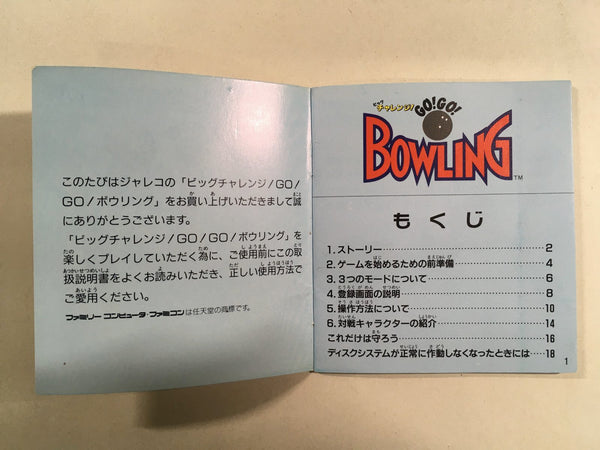 このたびはジャレコの「ビッグチャレンジ/GO/
GO/ボウリング」をお買い上げいただきまして誠
にありがとうございます。
「ビッグチャレンジ/GO/GO/ボウリング」を
楽しくプレイしていただく為に、ご使用前にこの取
扱説明書をよくお読みいただき、正しい使用方法で
ご愛用ください。
ファミリーコンピュータ・ファミコンは任天堂の商標です。
ビッグ
チャレンジ!
GO!GO!
BOWLING
TM
もくじ
1.ストーリー 2
2.ゲームを始めるための前準備 4
3.3つのモードについて 6
4.登録画面の説明 8
5.操作方法について 10
6.対戦キャラクターの紹介 14
これだけは守ろう 16
ディスクシステムが正常に作動しなくなったときには 18
1